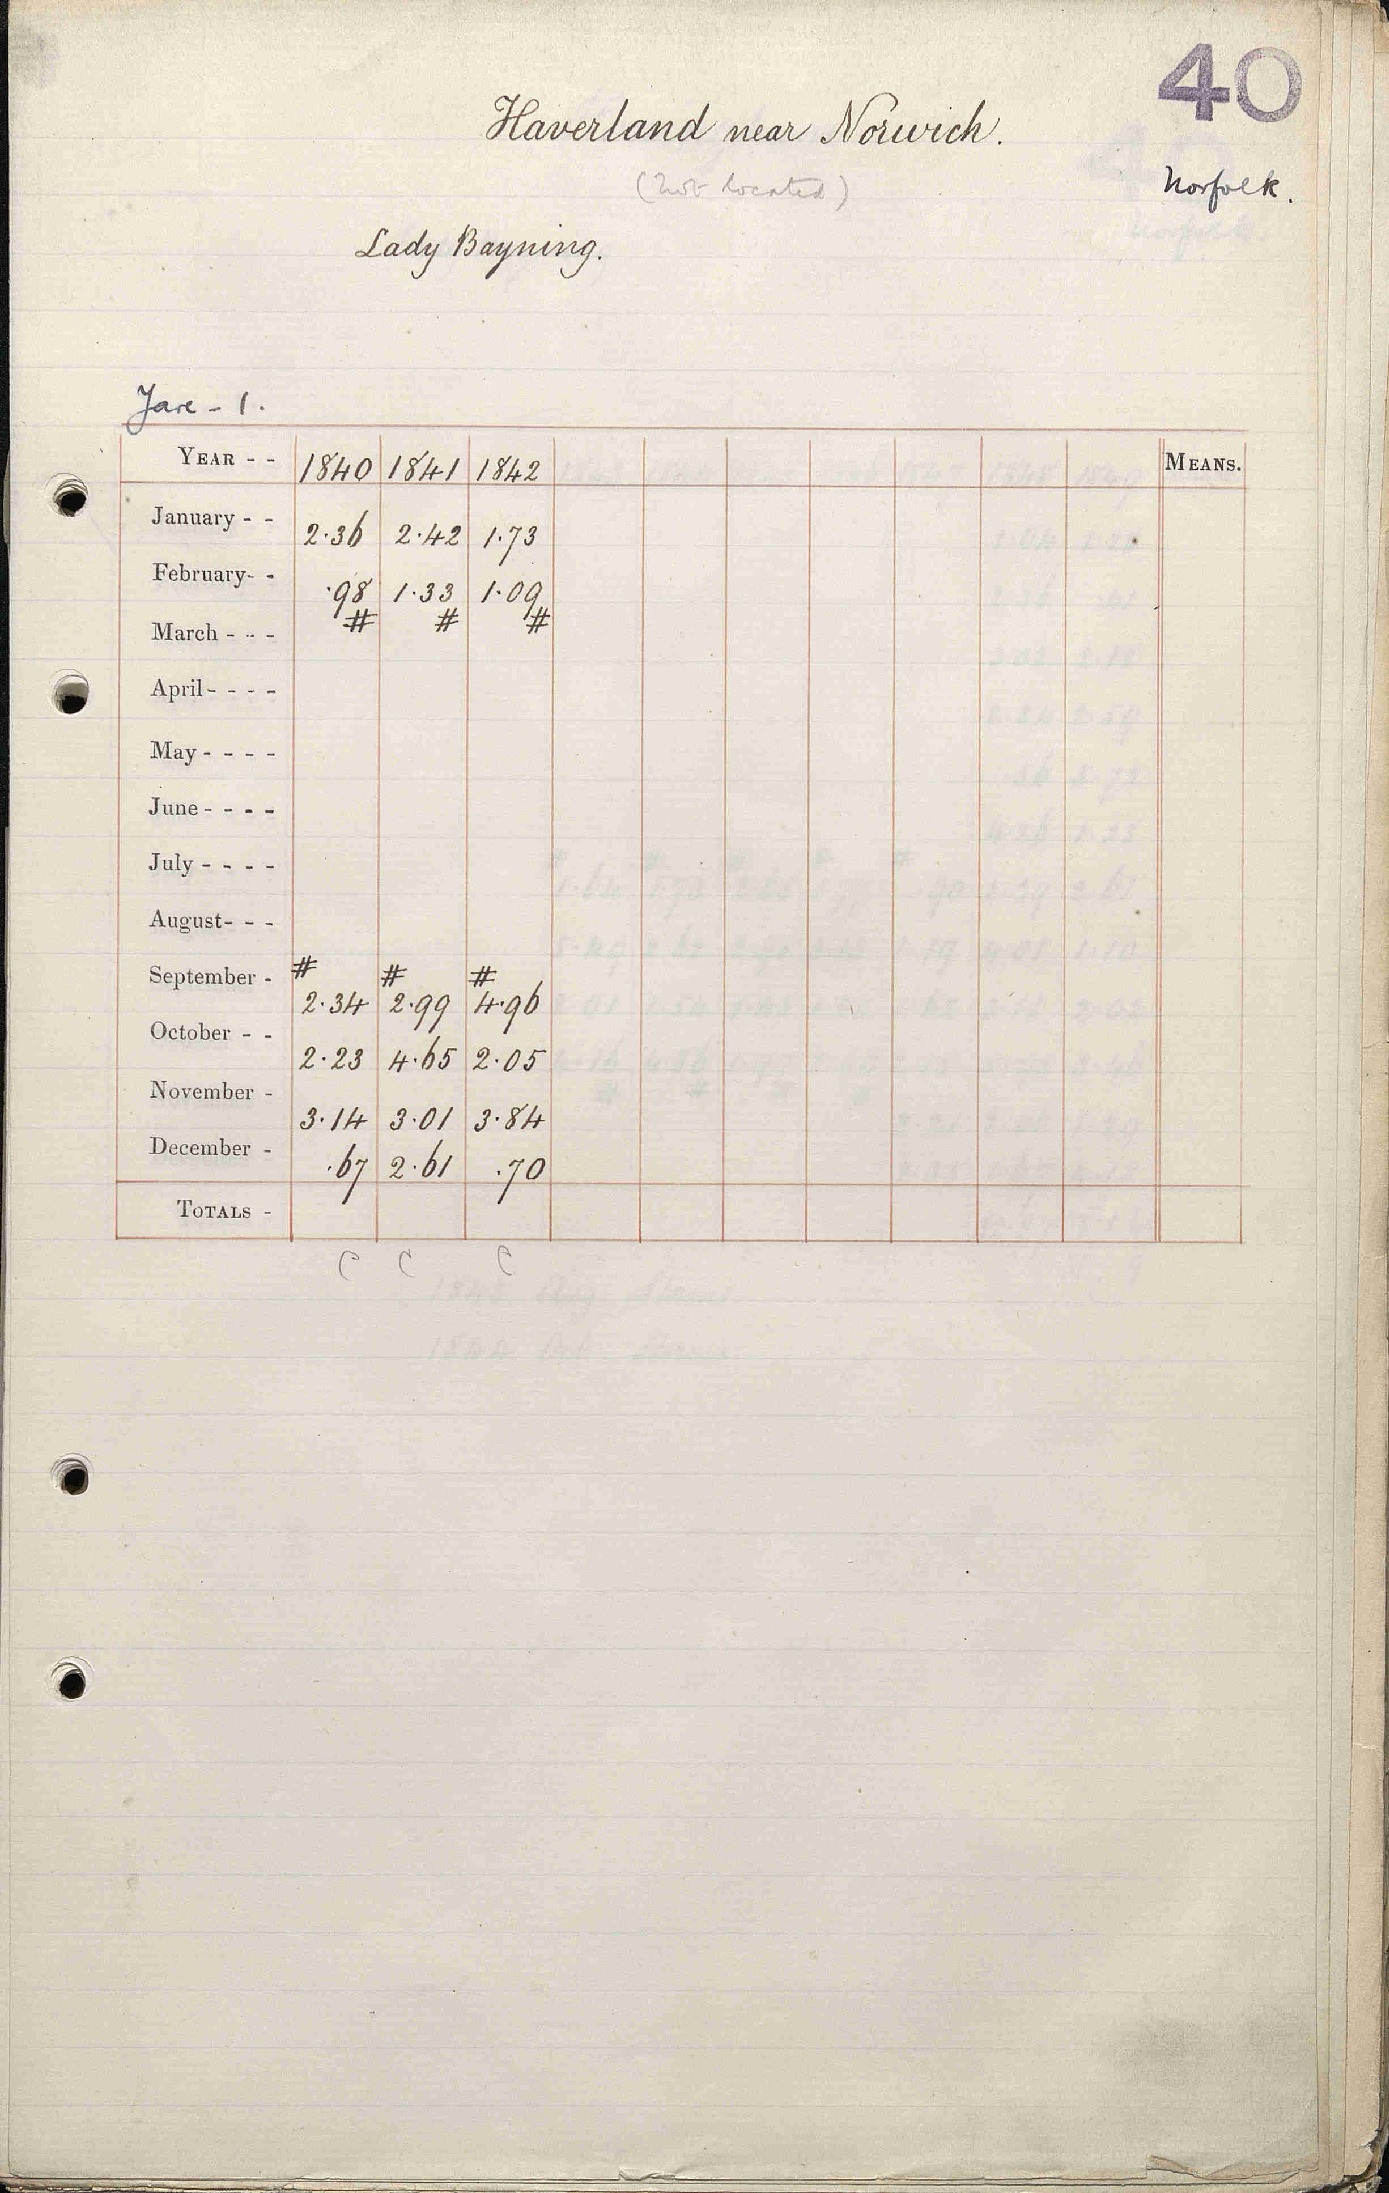 40
Haverland near Norwich.
(not located)
Norfolk.
Lady Bayning.
Yare - 1.
YEAR - - 1840 1841 1842 MEANS.
January - - 2.36 2.42 1.73
February- - .98 1.33 1.09
# # #
March - - -
April- - - -
May - - - -
June - - - -
July - - - -
August- - -
# # #
September - 2.34 2.99 4.96
October - - 2.23 4.65 2.05
November - 3.14 3.01 3.84
December - .67 2.61 .70
TOTALS -
C C C